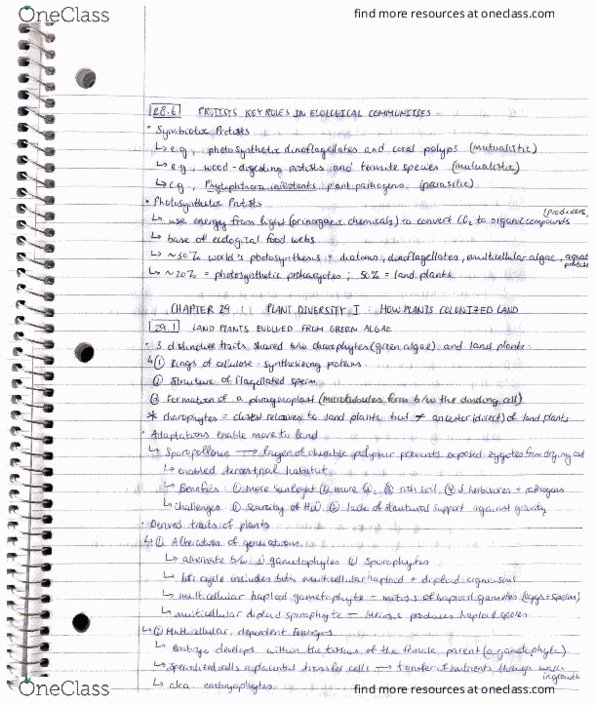 OneClass
find more resources at oneclass.com
28.6 PROTISTS KEY ROLES IN ECOLOGICAL COMMUNITIES
• Symbiotic Protists
↳ e.g, photosynthetic dinoflagellates and coral polyps (mutualistic)
↳ e.g, wood-digesting protists and termite species (mutualistic)
↳ e.g, Phytophthora infestants plant pathogens (parasitic)
• Photosynthetic Protists
(producers,
↳ use energy from light (or inorganic chemicals) to convert CO2 to organic compounds
↳ base of ecological food webs
↳ ~30% world's photosynthesis = diatoms, dinoflagellates, multicellular algae, aquatic protists
↳ ~20% = photosynthetic prokaryotes ; 50% = land plants
CHAPTER 29 PLANT DIVERSITY I HOW PLANTS COLONIZED LAND
29.1 LAND PLANTS EVOLVED FROM GREEN ALGAE
• 3 distinctive traits shared b/w charophytes (green algae) and land plants
↳ ① Rings of cellulose-synthesizing proteins
② Structure of flagellated sperm
③ Formation of a phragmoplast (microtubules form b/w the dividing cell)
* charophytes = closest relatives to land plants but ≠ ancestor (direct) of land plants
• Adaptations enable move to land
↳ Sporopollenin → layer of durable polymer prevents exposed zygotes from drying out
↳ enabled terrestrial habitat
↳ Benefits: ① more sunlight ② more ③ rich soil ④ herbivores + pathogens
↳ challenges: ① scarcity of H2O ② lack of structural support against gravity
• Derived traits of plants
↳ ① Alternation of generations
↳ alternate b/w gametophytes sporophytes
↳ life cycle includes both multicellular haploid + diploid organisms
↳ multicellular haploid gametophyte = mitosis of haploid gametes (eggs + sperm)
↳ multicellular diploid sporophyte = meiosis produces haploid spores
↳ ② Multicellular, dependent Embryos
↳ embryo develops within the tissues of the female parent (a gametophyte)
↳ specialized cells = placental transfer cells → transfer of nutrients through wall ingrowth
↳ aka embryophytes
OneClass
find more resources at oneclass.com